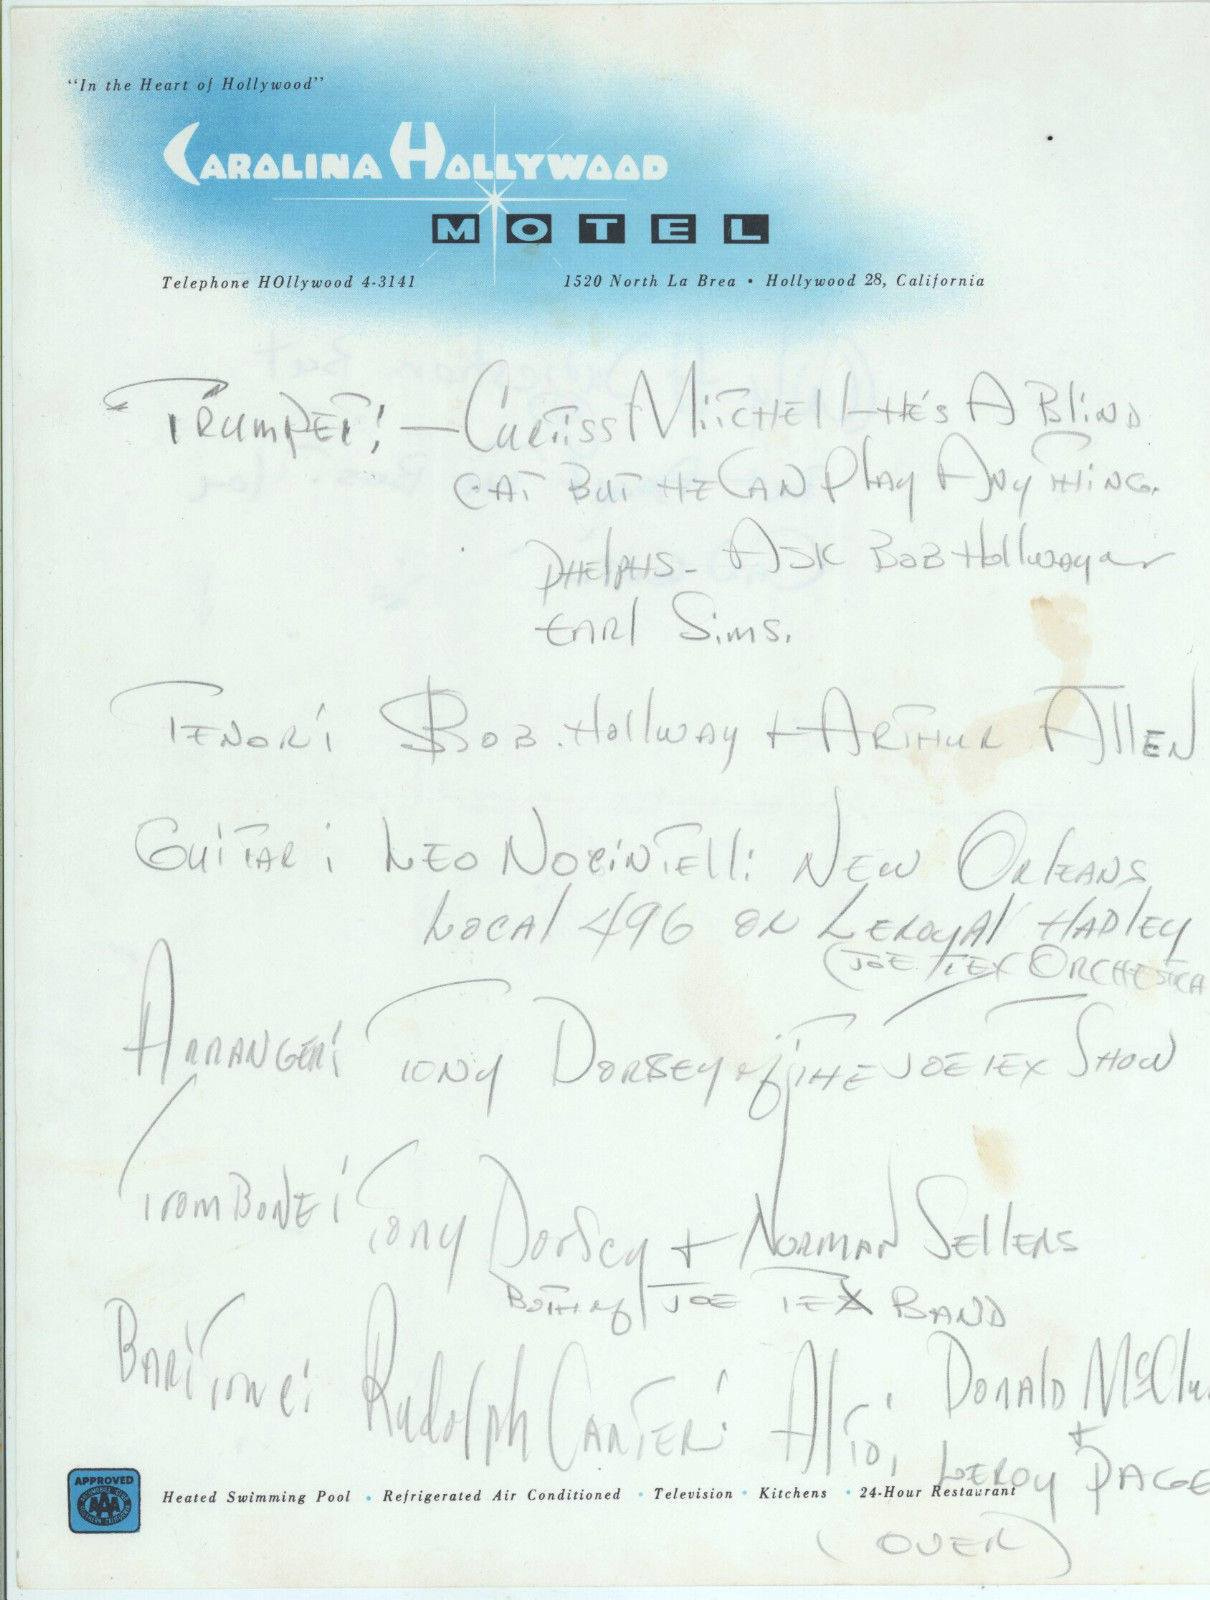 "In the Heart of Hollywood"
CAROLINA HOLLYWOOD
MOTEL
Telephone HOllywood 4-3141
1520 North La Brea • Hollywood 28, California
TRUMPET: — CURTISS MITCHELL - HE'S A BLIND
CAT BUT HE CAN PLAY ANYTHING.
PHELPHS - ASK BOB Hollway or
EARl Sims.
TENOR: BOB. Hollway + ARTHUR AllEN
GUITAR: LEO NOCINTElli NEW ORLEANS
LOCAl 496 OR LEROYAl HADlEY
(JOE TEX ORCHESTRA
ARRANGER: TONY DORSEY of THE JOE TEX SHOW
TromBONE: Tony Dorsey + NORMAN SEllERS
BOTH of JOE TEX BAND
BARITONE: Rudolph CARTER: AlTO: DONAlD
+
LEROY PAGE
APPROVED
AAA
Heated Swimming Pool • Refrigerated Air Conditioned • Television • Kitchens • 24-Hour Restaurant
(OVER)